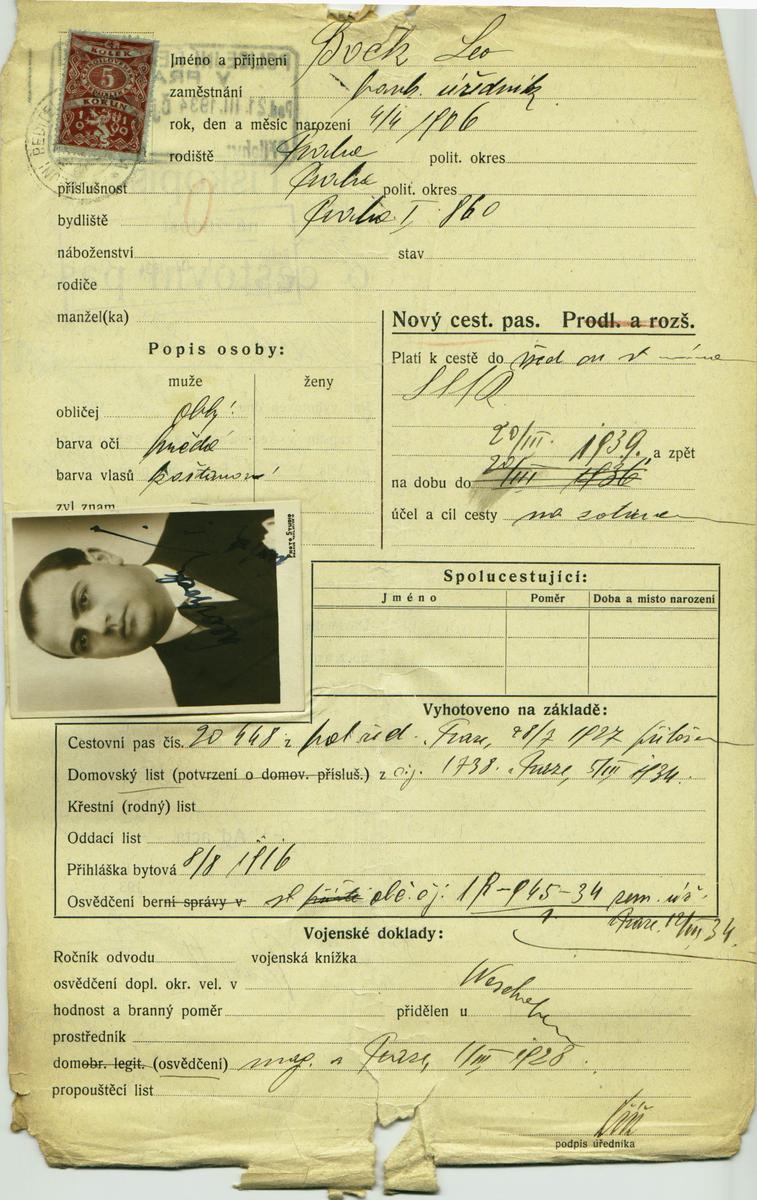 ČR
KOLEK
5
KORUN
1 9 1 0
Jméno a příjmení Bock Leo
zaměstnání bank. úředník
rok, den a měsíc narození 4/4 1906
rodiště Praha polit. okres
příslušnost Praha polit. okres
bydliště Praha I. 860
náboženství stav
rodiče
manžel(ka)
Popis osoby:
muže ženy
obličej oblý
barva očí hnědé
barva vlasů kaštanové
zvl. znam.
PHOTO STUDIO
Nový cest. pas. Prodl. a rozš.
Platí k cestě do
20/III. 1939. a zpět
na dobu do 20/III 1936
účel a cíl cesty na
Spolucestující:
Jméno Poměr Doba a místo narození
Vyhotoveno na základě:
Cestovní pas čís. 20448 z pol. řed. Praze, 28/7 1927
Domovský list (potvrzení o domov. přísluš.) z čj. 1738. Praze, 5/III 1934.
Křestní (rodný) list
Oddací list
Přihláška bytová 8/8 1916
Osvědčení berní správy v obč. čj. 1R-945-34 zem. úř.
Praze. 12/III 34.
Vojenské doklady:
Ročník odvodu vojenská knížka
osvědčení dopl. okr. vel. v
hodnost a branný poměr přidělen u
prostředník
domobr. legit. (osvědčení) mag. Praze, 1/III 1928.
propouštěcí list
podpis úředníka